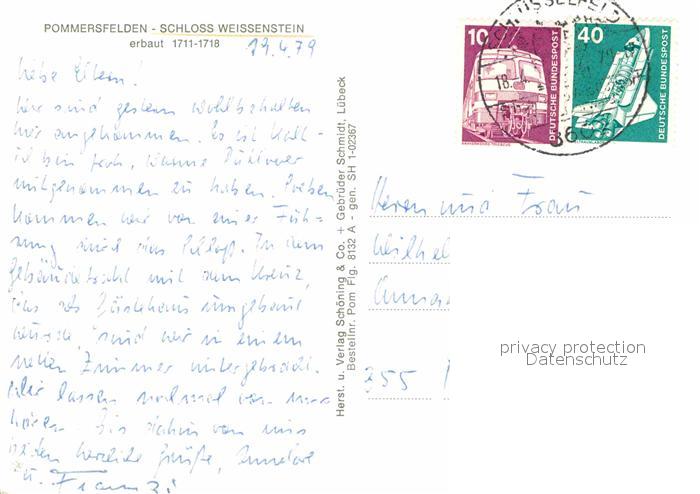 POMMERSFELDEN - SCHLOSS WEISSENSTEIN
erbaut 1711-1718
19.4.79
Liebe Eltern!
Wir sind gestern wohlbehalten
hier angekommen. Es ist kalt -
ich bin froh, warme Pullover
mitgenommen zu haben. Soeben
kommen wir von einer Füh-
rung durch das Schloß. In dem
Gebäudetrakt mit dem Kreuz,
das als Gästehaus umgebaut
wurde, sind wir in einem
netten Zimmer untergebracht.
Wir lassen nochmal von uns
hören. Bis dahin von uns
beiden herzliche Grüße,
u.
Herst. u. Verlag Schöning & Co. + Gebrüder Schmidt, Lübeck
Bestellnr. Pom Flg. 8132 A - gen. SH 1-02367
10
DEUTSCHE BUNDESPOST
40
DEUTSCHE BUNDESPOST
SCHLÜSSELFELD
18.
8602
Herrn und Frau
Wilhel
355
privacy protection
Datenschutz